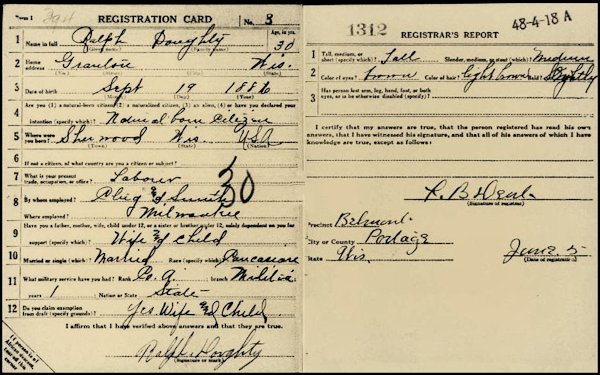 Form 1 394 REGISTRATION CARD No. 3
1 Name in full Ralph Doughty Age, in yrs. 30
(Given name) (Family name)
2 Home address Wis.
(No.) (Street) (City) (State)
3 Date of birth Sept 19 1886
(Month) (Day) (Year)
4 Are you (1) a natural-born citizen, (2) a naturalized citizen, (3) an alien, (4) or have you declared your
intention (specify which)? Natural born Citizen
5 Where were you born? Sherwood Wis. USA
(Town) (State) (Nation)
6 If not a citizen, of what country are you a citizen or subject?
7 What is your present trade, occupation, or office? Laborer
30
8 By whom employed?
Where employed? Milwaukee
9 Have you a father, mother, wife, child under 12, or a sister or brother under 12, solely dependent on you for
support (specify which)? Wife & Child
10 Married or single (which)? Married Race (specify which)? Caucasian
11 What military service have you had? Rank branch Militia
years 1 Nation or State State
12 Do you claim exemption from draft (specify grounds)? Yes Wife and Child
I affirm that I have verified above answers and that they are true.
Ralph Doughty
(Signature or mark)
If person is of African descent, tear off this corner
1312 48-4-18 A
REGISTRAR'S REPORT
1 Tall, medium, or short (specify which)? Tall Slender, medium, or stout (which)? Medium
2 Color of eyes? brown Color of hair? light brown Bald? Slightly
3 Has person lost arm, leg, hand, foot, or both
eyes, or is he otherwise disabled (specify)?
I certify that my answers are true, that the person registered has read his own
answers, that I have witnessed his signature, and that all of his answers of which I have
knowledge are true, except as follows:
(Signature of registrar)
Precinct Belmont
City or County Portage
State Wis. June 5
(Date of registration)